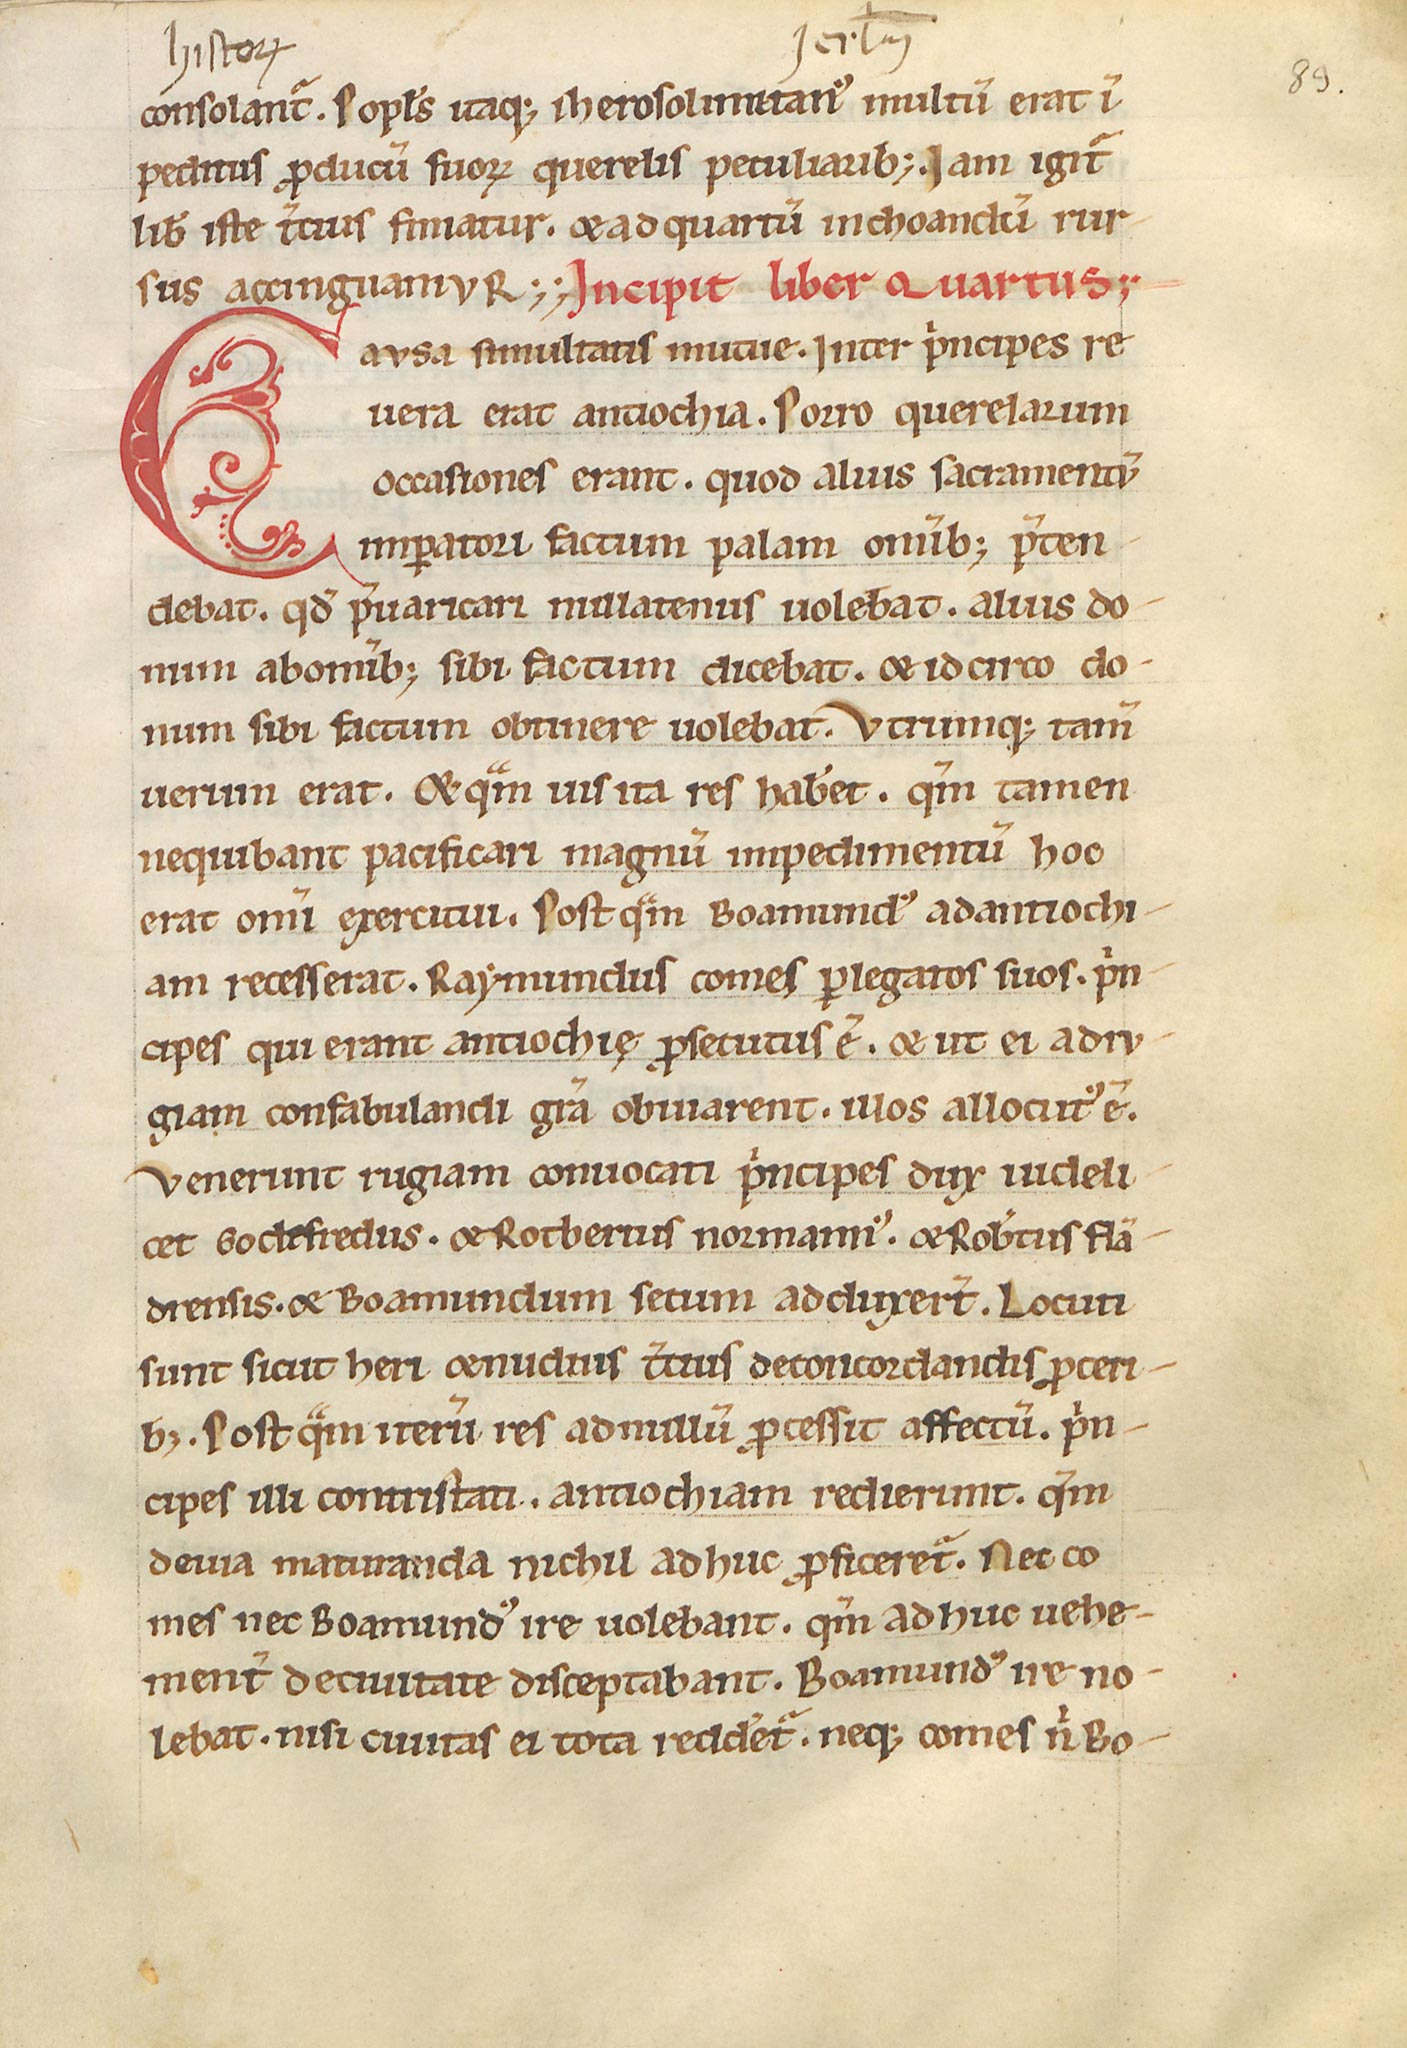 histoꝝ Jerl̅m
89.
consolant᷑. Popl̅s itaq; iherosolimitanꝰ multū erat ī
peditus ꝓ ducū suoꝝ querelis peculiarib;. Jam igit᷑
lib̅ iste t̅cius finiatur. & ad quartū inchoandū rur-
sus accinguamuR:;; Incipit liber Quartus;
Causa simultatis mutue. Inter p̅ncipes re
uera erat antiochia. Porro querelarum
occasiones erant. quod alius sacramentū
imꝑatori factum palam om̅ib; p̅ten-
debat. qd̅ p̅uaricari nullatenus uolebat. alius do-
num ab om̅ib; sibi factum dicebat. & idcirco do-
num sibi factum obtinere uolebat. Vtrumq; tam̅
uerum erat. & qᵃm uis ita res hab̅et. qm̅ tamen
nequibant pacificari magnū impedimentū hoc
erat om̅i exercitui. Post qᵃm Boamundꝰ ad antiochi-
am recesserat. Raymundus comes ꝑ legatos suos. p̅n-
cipes qui erant antiochię ꝓsecutus ē. & ut ei ad ru-
giam confabulandi gr̅a obuiarent. illos allocutꝰ ē.
Venerunt rugiam conuocati p̅ncipes dux uideli-
cet Godefredus. & Rotbertus normannꝰ. & Rob̅tus flā-
drensis. & Boamundum secum adduxer̅t. Locuti
sunt sicut heri & nudius t̅cius de concordandis ꝓceri-
b;. Post qᵃm iterū res ad nullū ꝓcessit affectū. p̅n-
cipes illi contristati. antiochiam redierunt. qm̅
de uia maturanda nichil adhuc ꝓficeret᷑. Nec co
mes nec Boamundꝰ ire uolebant. qm̅ adhuc uehe-
ment̅ de ciuitate disceptabant. Boamundꝰ ire no-
lebat. nisi ciuitas ei tota redd̅et᷑. neq; comes n̅ Bo-